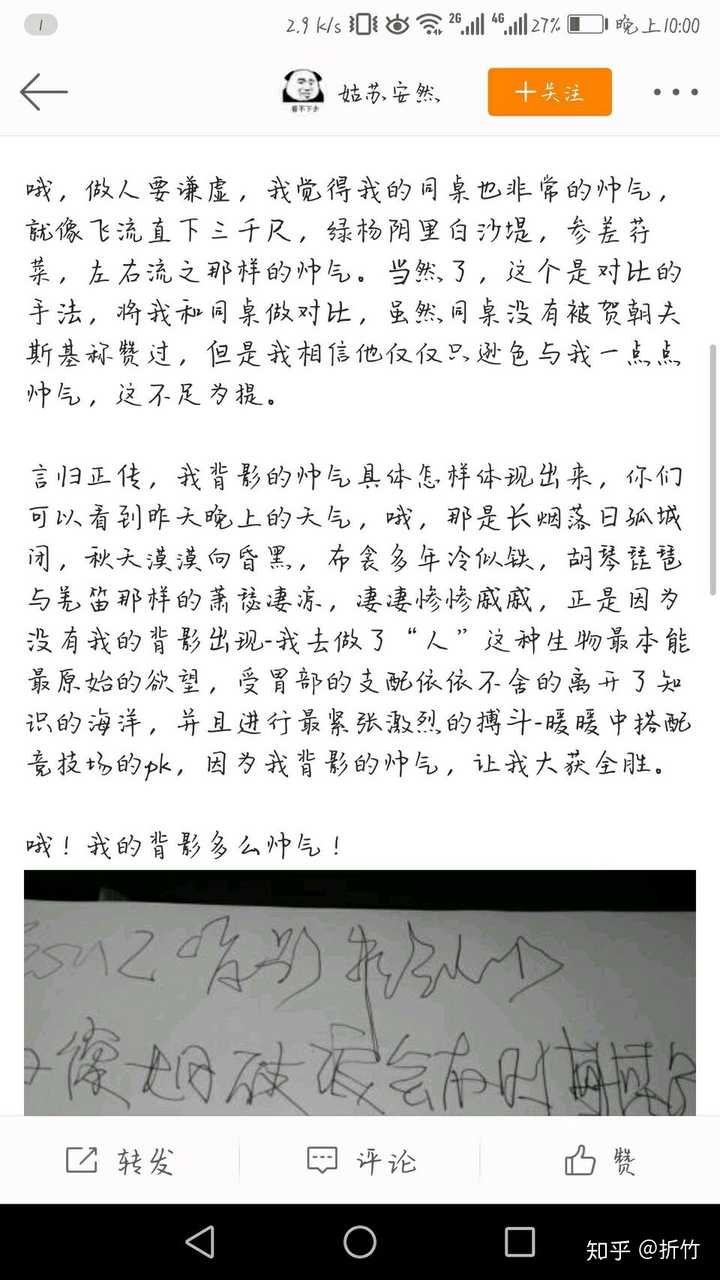 1
2.9 k/s 2G 4G 27% 晚上10:00
看不下去
姑苏安然
关注
哦，做人要谦虚，我觉得我的同桌也非常的帅气，
就像飞流直下三千尺，绿杨阴里白沙堤，参差荇
菜，左右流之那样的帅气。当然了，这个是对比的
手法，将我和同桌做对比，虽然同桌没有被贺朝夫
斯基称赞过，但是我相信他仅仅只逊色与我一点点
帅气，这不足为提。
言归正传，我背影的帅气具体怎样体现出来，你们
可以看到昨天晚上的天气，哦，那是长烟落日孤城
闭，秋天漠漠向昏黑，布衾多年冷似铁，胡琴琵琶
与羌笛那样的萧瑟凄凉，凄凄惨惨戚戚，正是因为
没有我的背影出现-我去做了“人”这种生物最本能
最原始的欲望，受胃部的支配依依不舍的离开了知
识的海洋，并且进行最紧张激烈的搏斗-暖暖中搭配
竞技场的pk，因为我背影的帅气，让我大获全胜。
哦！我的背影多么帅气！
长风破浪会有时
转发
评论
赞
知乎 @折竹